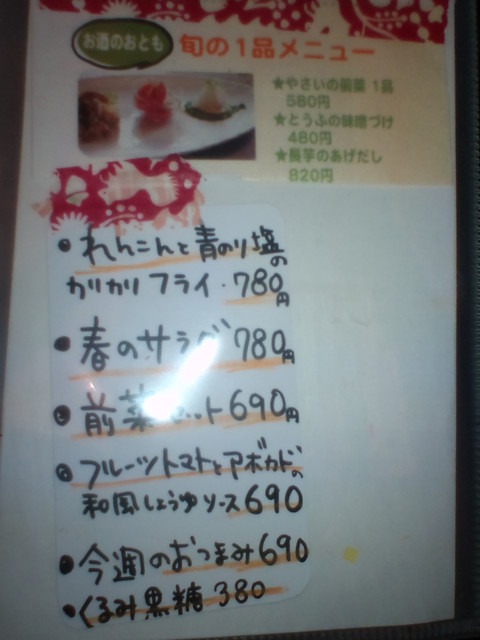 お酒のおとも 旬の1品メニュー
★やさいの前菜 1品
580円
★とうふの味噌づけ
480円
★長芋のあげだし
820円
・れんこんと青のり塩の
カリカリ フライ・780円
・春のサラダ 780円
・前菜 ット 690円
・フルーツトマトとアボカドの
和風しょうゆソース 690
・今週のおつまみ 690
・くるみ黒糖 380